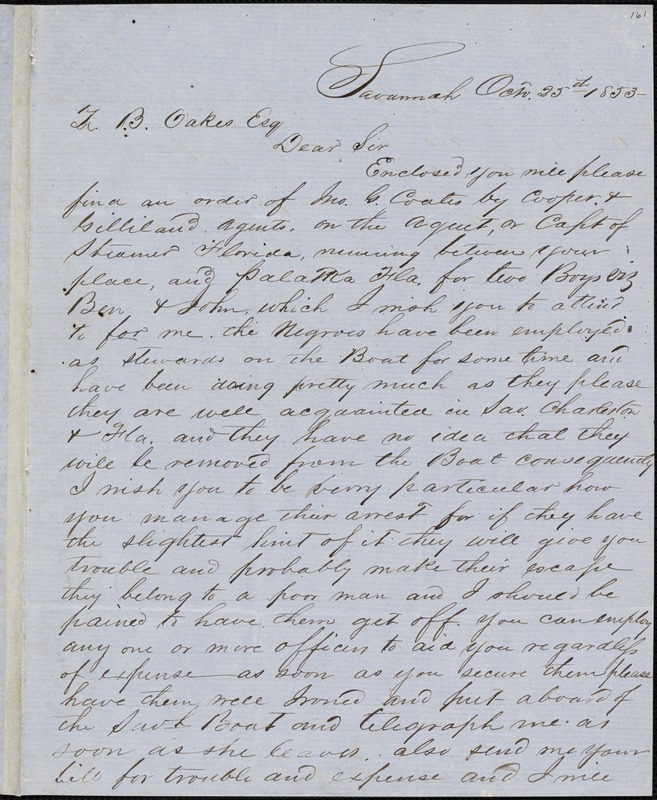 161
Savannah Octr. 25th 1853
Z. B. Oakes Esq
Dear Sir
Enclosed you will please
find an order of Jno. G. Coates by Cooper &
Gilliland Agents. on the Agent, or Capt of
Steamer Florida, running between your
place, and Palatka Fla. for two Boys viz
Ben & John, which I wish you to attend
to for me. the Negroes have been employed
as stewards on the Boat for some time and
have been doing pretty much as they please
they are well acquainted in Sav. Charleston
& Fla. and they have no idea that they
will be removed from the Boat consequently
I wish you to be verry particular how
you manage their arrest for if they have
the slightest hint of it they will give you
trouble and probably make their escape
they belong to a poor man and I should be
pained to have them get off you can employ
any one or more officers to aid you regardless
of expense as soon as you secure them please
have them well Ironed and put aboard of
the Savh Boat and telegraph me as
soon as she leaves. also send me your
bill for trouble and expense and I will